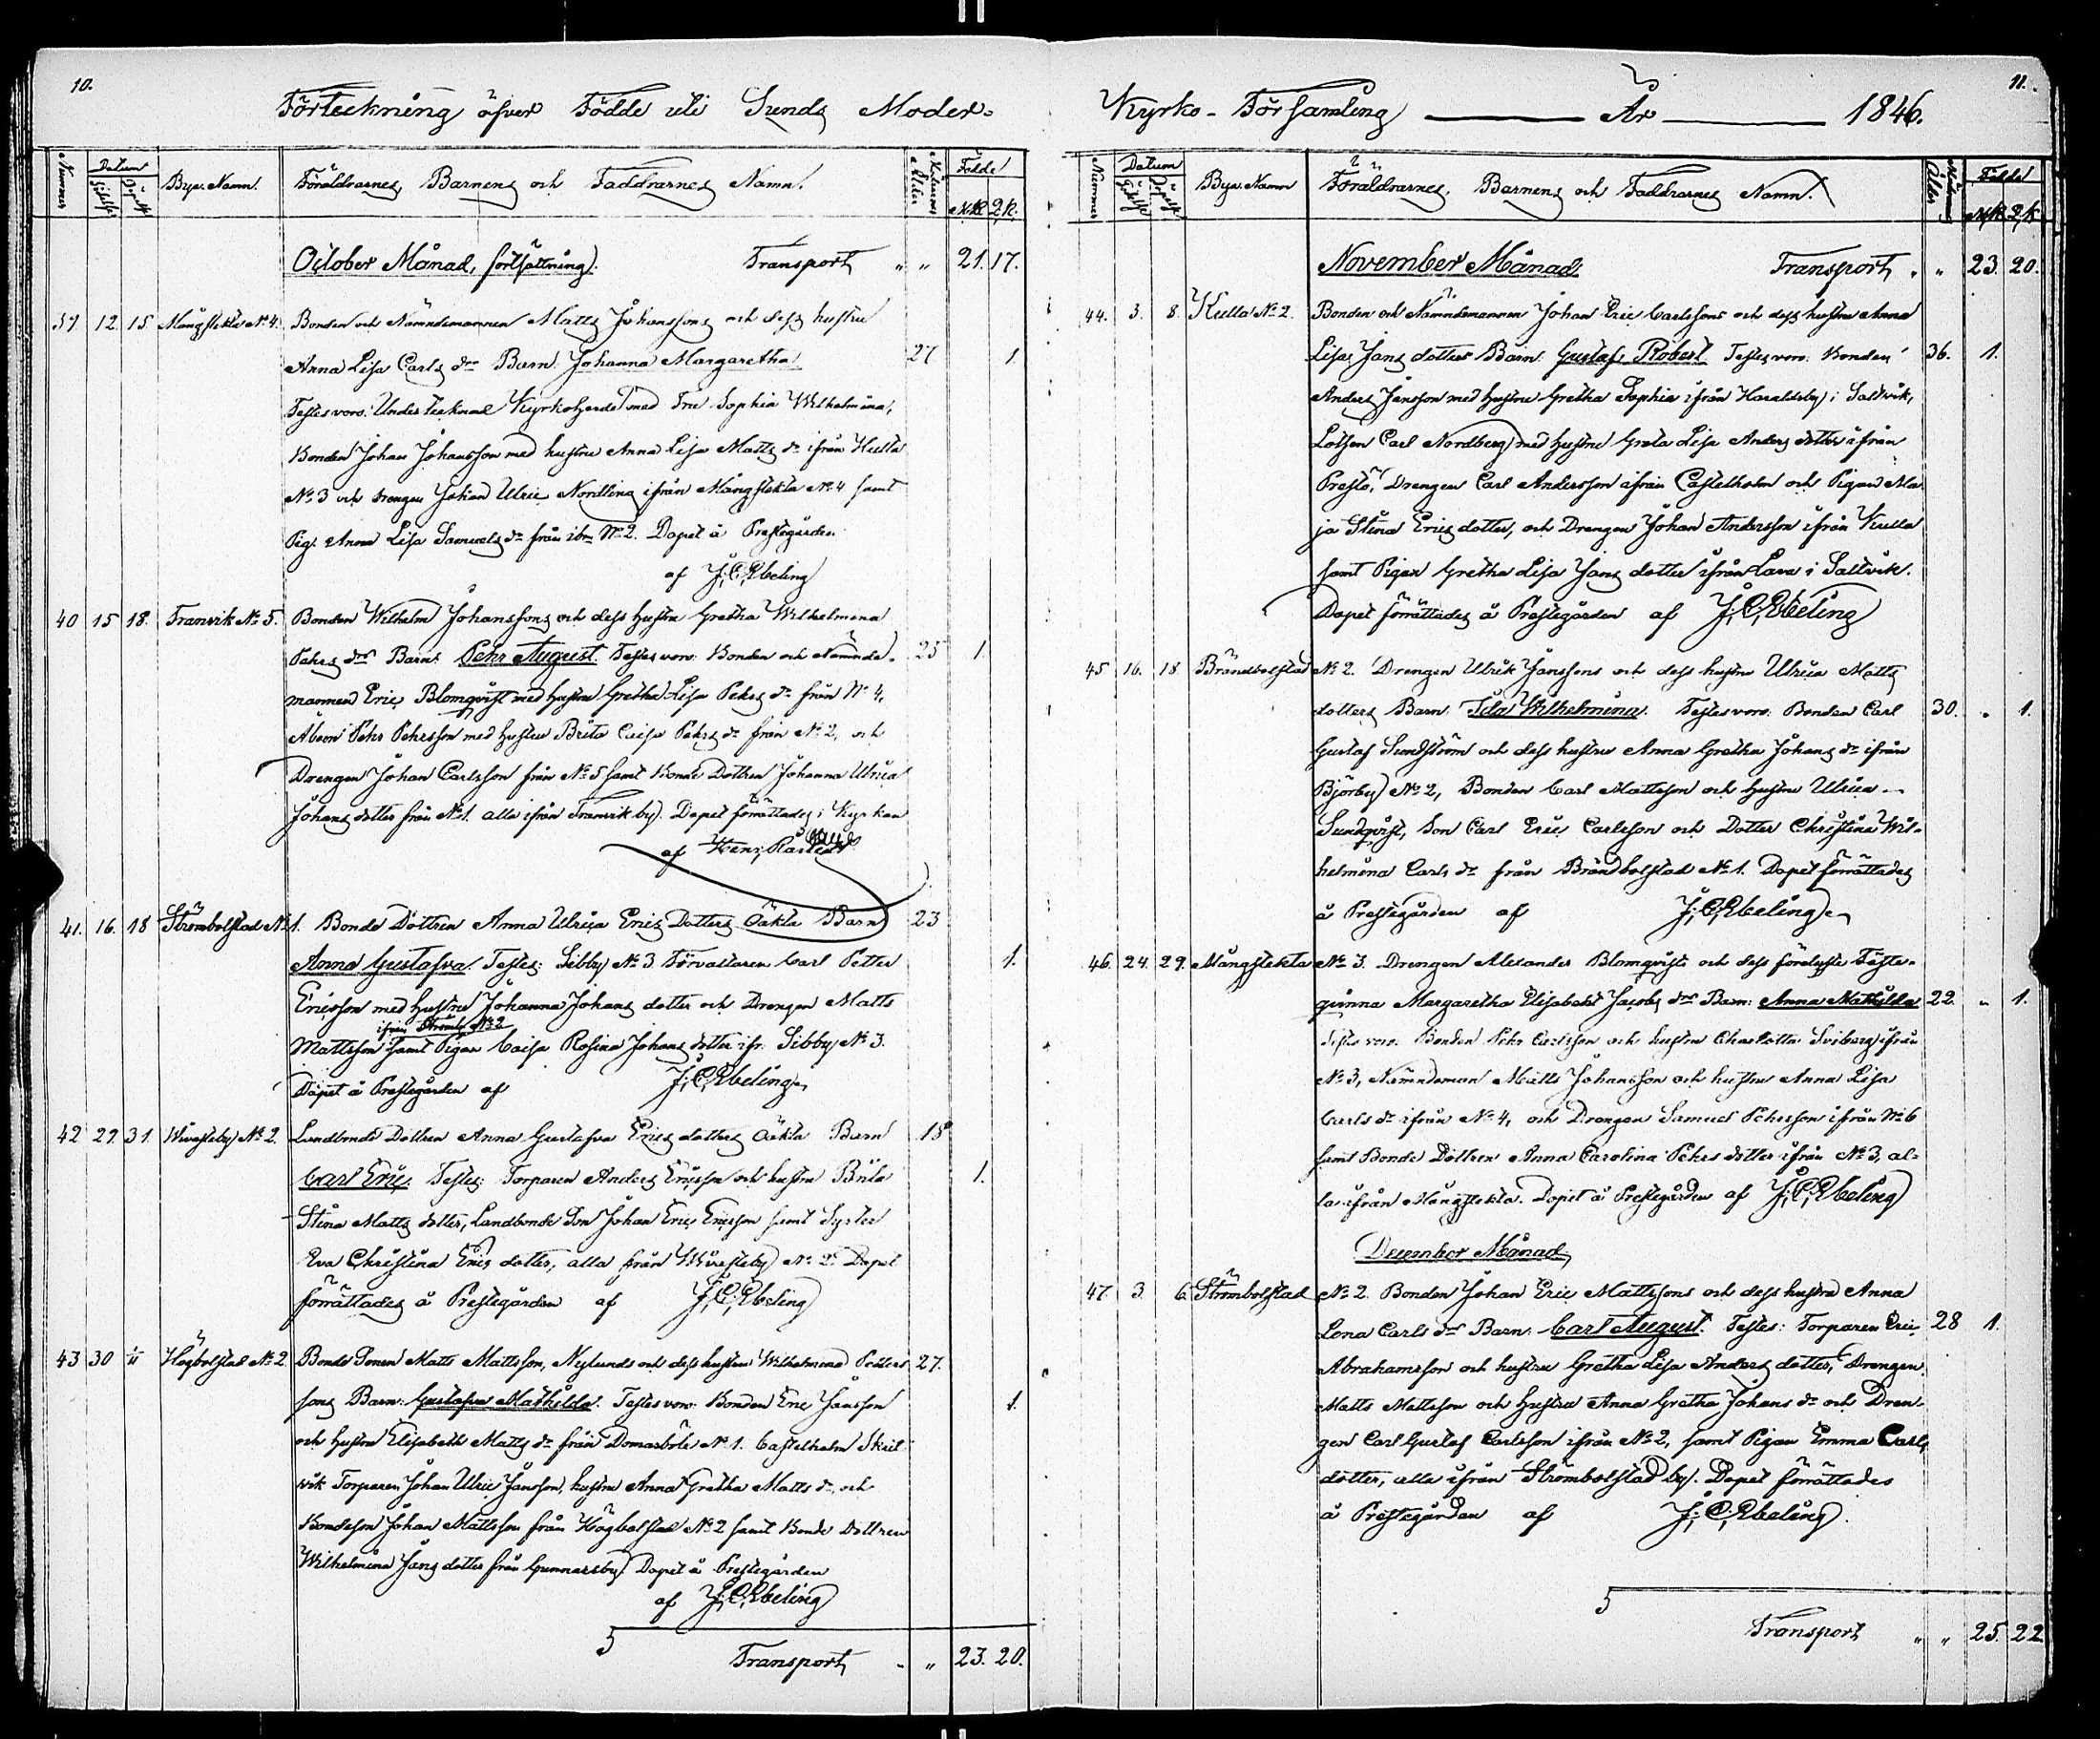 10.
Förteckning öfver Födde uti Sunds Moder-
Nummer Datum Födelse Döpelse Byar. Namn. Föräldrarnes, Barnens och Faddrarnes Namn. Modrens Ålder Födde M.K. Q.K.
October Månad, fortsättning. Transport " " 21. 17.
39 12 15 Mångstekta No 4. Bonden och Nämndemannen Matts Johanssons och dess hustru
Anna Lisa Carls dr Barn. Johanna Margaretha. 27 1.
Testes voro: Undertecknad Kyrkoherde med Fru Sophia Wilhelmina,
Bonden Johan Johansson med hustru Anna Lisa Matts dr ifrån Kulla
No 3 och drengen Johan Ulric Nordling ifrån Mångstekta No 4 samt
Pig. Anna Lisa Samuels dr från ibm No 2. Dopet å Prestegården
af J.C. Ebeling
40 15 18. Tranvik No 5. Bonden Wilhelm Johanssons och dess hustru Gretha Wilhelmina
Pehrs drs Barn: Pehr August. Testes voro: Bonden och Nämnde- 25 1.
mannen Eric Blomqvist med hustru Gretha Lisa Pehrs dr från No 4,
Åboen Pehr Pehrsson med hustru Brita Caisa Pehrs dr från No 2, och
Drengen Johan Carlsson från No 5 samt Bonde Dottren Johanna Ulrica
Johans dotter från No 1. alla ifrån Tranvik by. Dopet förrättades i Kyrkan
af Henr.
41. 16. 18 Strömbolstad No 1. Bonde Dottren Anna Ulrica Erics Dotters Oäkta Barn 23
Anna Gustafva. Testes: Sibby No 3 Förvaltaren Carl Petter 1.
Ericsson med hustru Johanna Johans dotter och Drengen Matts
ifrån Strömb. No 2
Mattsson samt Pigan Caisa Rosina Johans dotter ifr. Sibby No 3.
Dopet å Prestegården af J.C. Ebeling
42 29. 31. Wivasteby No 2. Landbonde Dottren Anna Gustafva Erics dotters Oäkta Barn 18
Carl Eric. Testes: Torparen Anders Ericsson och hustru Brita 1.
Stina Matts dotter, Landbonde Son Johan Eric Ericsson samt Syster
Eva Christina Erics dotter, alla från Wivasteby No 2. Dopet
förrättades å Prestegården af J.C. Ebeling
43 30 1/11 Högbolstad No 2 Bonde Sonen Matts Mattsson, Nylunds och dess hustru Wilhelmina Petters- 27.
sons Barn: Gustafva Mathilda. Testes voro: Bonden Eric Jansson 1.
och hustru Elisabeth Matts dr från Domarböle No 1. Castelholm Skril-
vik Torparen Johan Ulric Jansson, hustru Anna Gretha Matts dr, och
Bondeson Johan Mattsson från Högbolstad No 2 samt Bonde Dottren
Wilhelmina Jans dotter från Gunnarsby. Dopet å Prestegården
af J.C. Ebeling
Transport " " 23. 20.
11.
Kyrko-Församling År 1846.
Nummer Datum Födelse Döpelse Byar. Namn Föräldrarnes, Barnens och Faddrarnes Namn. Modrens Ålder Födde M.K. Q.K
November Månad. Transport " " 23. 20.
44. 3. 8. Kulla No 2. Bonden och Nämndemannen Johan Eric Carlssons och dess hustru Anna
Lisa Jans dotters Barn: Gustaf Robert. Testes voro: Bonden 36. 1.
Anders Jansson med hustru Gretha Sophia ifrån Haraldsby i Saltvik,
Lotsen Carl Nordberg med hustru Greta Lisa Anders dotter ifrån
Prestö, Drengen Carl Andersson ifrån Castelholm och Pigan Ma-
ja Stina Erics dotter, och Drengen Johan Andersson ifrån Kulla
samt Pigan Gretha Lisa Jans dotter ifrån Lava i Saltvik.
Dopet förrättades å Prestegården af J.C. Ebeling
45 16. 18 Brändbolstad No 2. Drengen Ulrik Janssons och dess hustru Ulrica Matts
dotters Barn: Tilda Wilhelmina. Testes voro: Bonden Carl 30. " 1.
Gustaf Sundström och dess hustru Anna Gretha Johans dr ifrån
Björby No 2, Bonden Carl Mattsson och hustru Ulrica
Sundqvist, Son Carl Eric Carlsson och Dotter Christina Wil-
helmina Carls dr från Brändbolstad No 1. Dopet förrättades
å Prestegården af J.C. Ebeling.
46. 24. 29. Mångstekta No 3. Drengen Alexander Blomqvists och dess förelysta Fäste-
qvinna Margaretha Elisabeth Jacobs drs Barn: Anna Mathilda 22. " 1.
Testes voro: Bonden Pehr Carlsson och hustru Charlotta Sviberg ifrån
No 3, Nämndeman Matts Johansson och hustru Anna Lisa
Carls dr ifrån No 4, och Drengen Samuel Pehrsson ifrån No 6
samt Bonde Dottren Anna Carolina Pehrs dotter ifrån No 3, al-
la ifrån Mångstekta. Dopet å Prestegården af J.C. Ebeling
December Månad
47 3 6. Strömbolstad No 2. Bonden Johan Eric Mattssons och dess hustru Anna
Lena Carls drs Barn: Carl August. Testes: Torparen Eric 28 1.
Abrahamsson och hustru Gretha Lisa Anders dotter, Drengen
Matts Mattsson och hustru Anna Gretha Johans dr och Dren-
gen Carl Gustaf Carlsson ifrån No 2, samt Pigan Emma Carls
dotter, alla ifrån Strömbolstad by. Dopet förrättades
å Prestegården af J.C. Ebeling.
Transport " " 25. 22